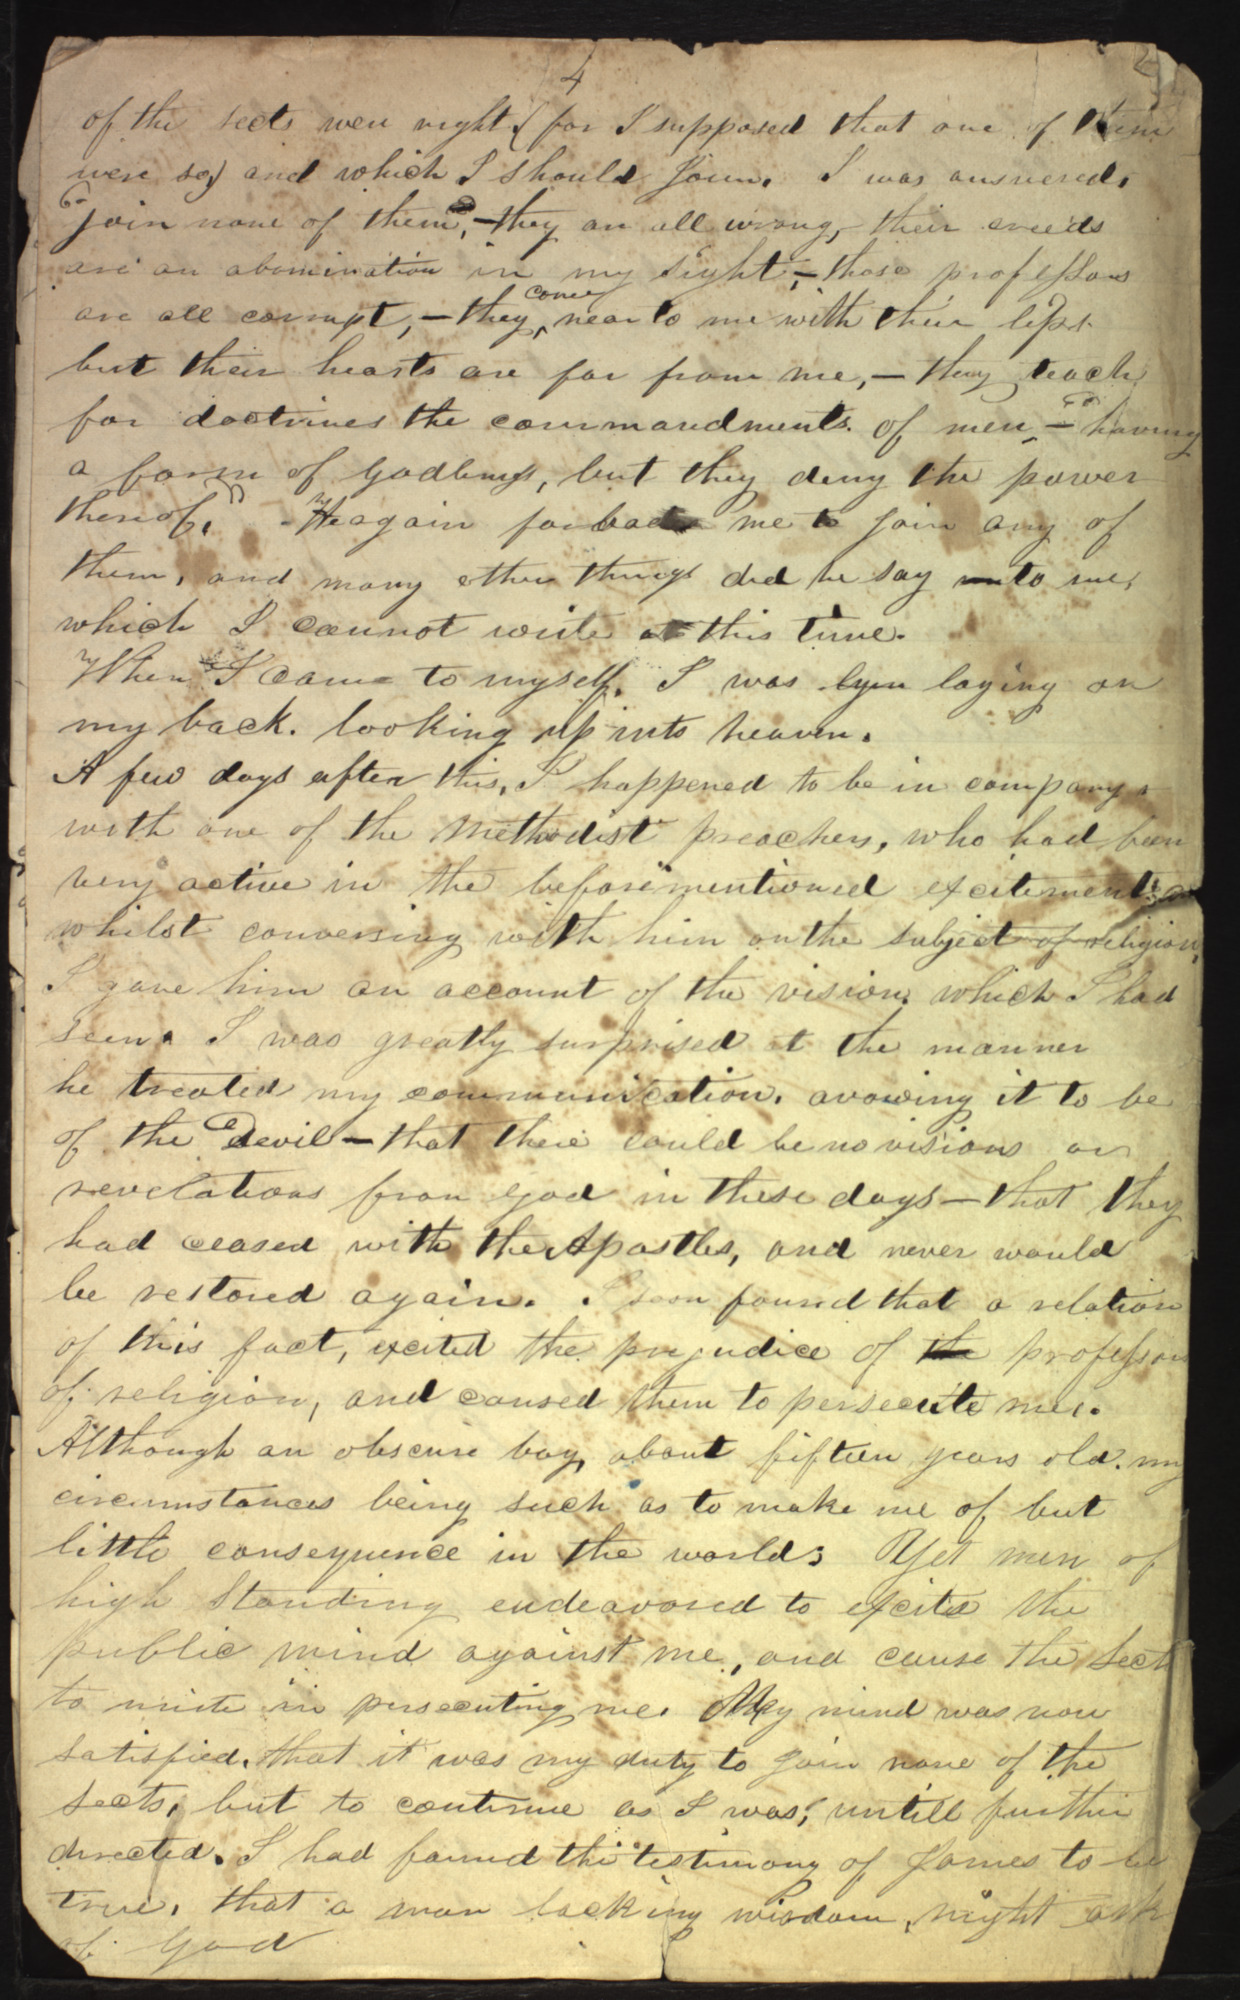 4
of the sects were right, (for I supposed that one of them
were so) and which I should join. I was answered,
"join none of them, – they are all wrong, their creeds
are an abomination in my sight, – those professors
are all corrupt, – they come near to me with their lips
but their hearts are far from me, – they teach
for doctrines the commandments of men, – having
a form of Godliness, but they deny the power
thereof." He again forbade me to join any of
them, and many other things did he say unto me,
which I cannot write at this time.
When I came to myself, I was lyin laying on
my back. looking up into heaven.
A few days after this, I happened to be in company
with one of the Methodist preachers, who had been
very active in the beforementioned excitement,
whilst conversing with him on the subject of religion,
I gave him an account of the vision, which I had
seen. I was greatly surprised at the manner
he treated my communication. avowing it to be
of the Devil – that there could be no visions or
revelations from God in these days – that they
had ceased with the Apostles, and never would
be restored again. I soon found that a relation
of this fact, excited the prejudice of the professors
of religion, and caused them to persecute me.
Although an obscure boy, about fifteen years old. my
circumstances being such as to make me of but
little consequence in the world; Yet men of
high Standing endeavored to excite the
public mind against me, and cause the Sects
to unite in persecuting me. My mind was now
satisfied, that it was my duty to join none of the
Sects, but to continue as I was, untill further
directed. I had found the testimony of James to be
true, that a man lacking wisdom, might ask
of God